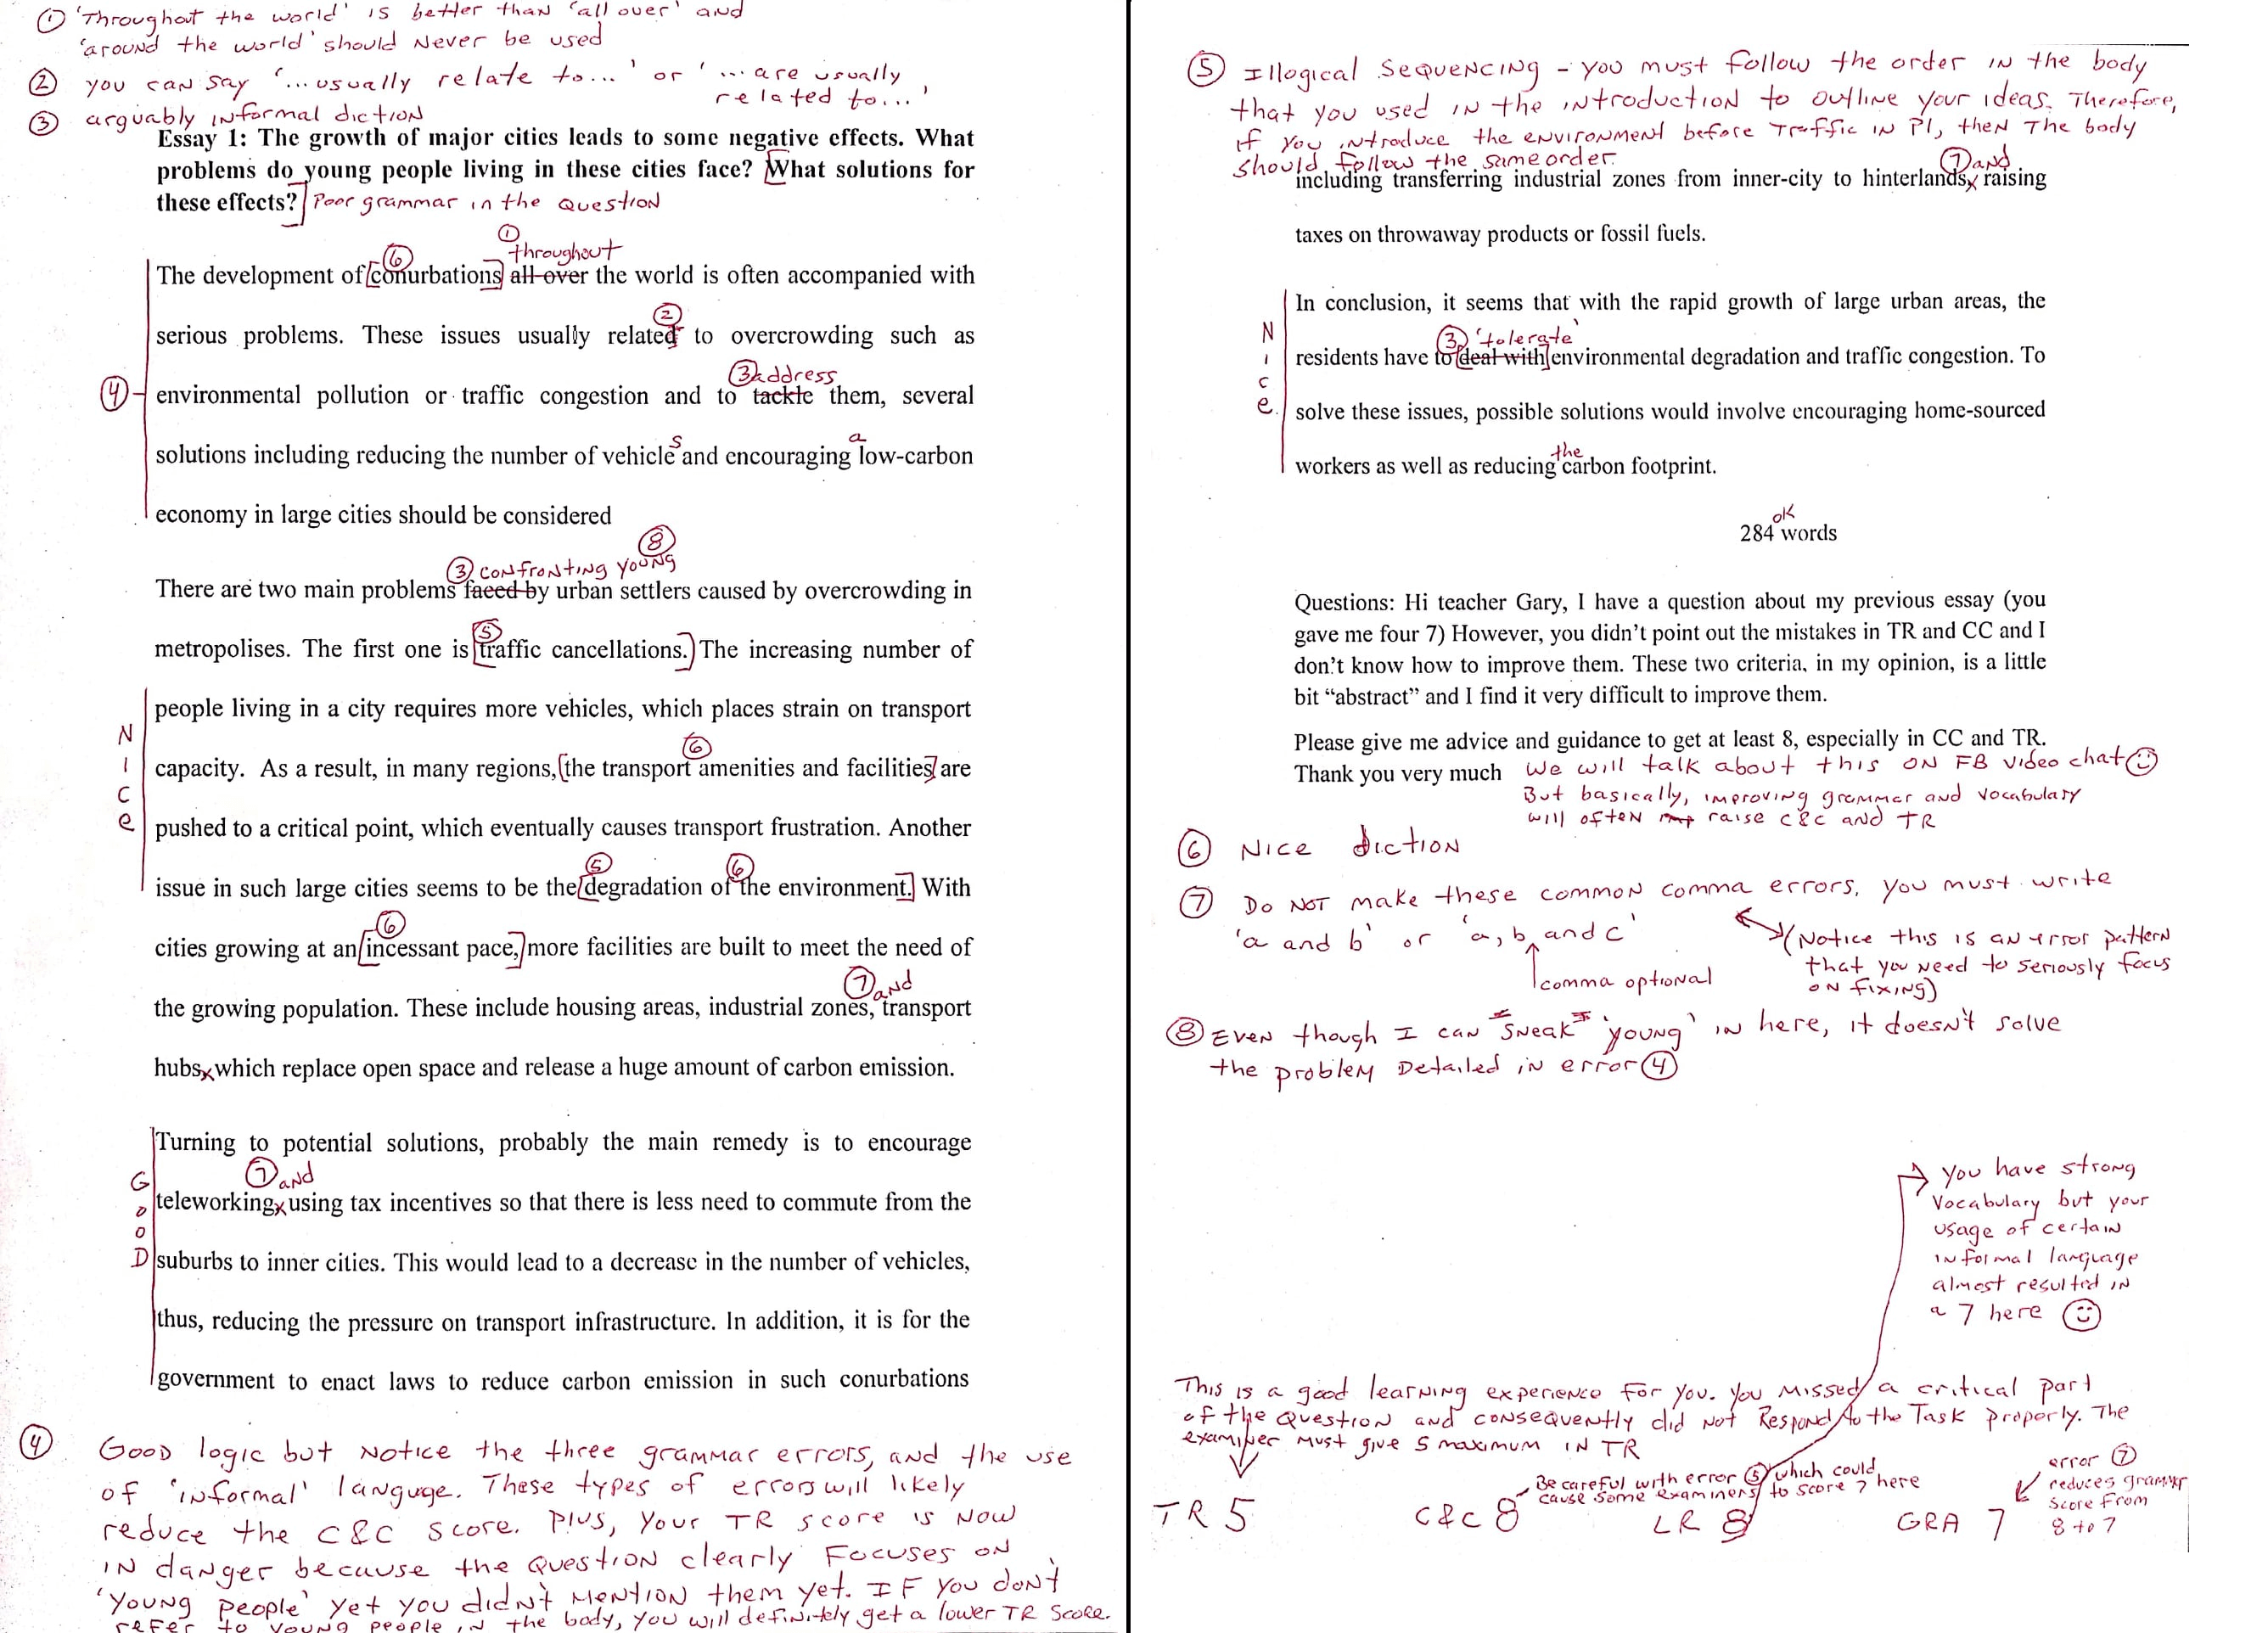 ① 'Throughout the world' is better than 'all over' and
'around the world' should never be used
② you can say '...usually relate to...' or '...are usually
related to...'
③ arguably informal diction
Essay 1: The growth of major cities leads to some negative effects. What
problems do young people living in these cities face? What solutions for
these effects? Poor grammar in the question
① throughout
⑥
The development of [conurbations] all over the world is often accompanied with
②
serious problems. These issues usually related to overcrowding such as
③ address
④ environmental pollution or traffic congestion and to tackle them, several
s a
solutions including reducing the number of vehicle and encouraging low-carbon
economy in large cities should be considered
⑧
③ confronting young
There are two main problems faced by urban settlers caused by overcrowding in
⑤
metropolises. The first one is [traffic cancellations.] The increasing number of
Nice
people living in a city requires more vehicles, which places strain on transport
⑥
capacity. As a result, in many regions, [the transport amenities and facilities] are
pushed to a critical point, which eventually causes transport frustration. Another
⑤ ⑥
issue in such large cities seems to be the [degradation of the environment.] With
⑥
cities growing at an [incessant pace,] more facilities are built to meet the need of
⑦ and
the growing population. These include housing areas, industrial zones, transport
hubs, which replace open space and release a huge amount of carbon emission.
Good
Turning to potential solutions, probably the main remedy is to encourage
⑦ and
teleworking, using tax incentives so that there is less need to commute from the
suburbs to inner cities. This would lead to a decrease in the number of vehicles,
thus, reducing the pressure on transport infrastructure. In addition, it is for the
government to enact laws to reduce carbon emission in such conurbations
④ Good logic but notice the three grammar errors, and the use
of 'informal' languge. These types of errors will likely
reduce the C&C score. Plus, your TR score is now
in danger because the question clearly focuses on
'young people' yet you didn't mention them yet. If you don't
refer to young people in the body, you will definitely get a lower TR score.
⑤ Illogical sequencing - you must follow the order in the body
that you used in the introduction to outline your ideas. Therefore,
if you introduce the environment before traffic in P1, then the body
should follow the same order.
⑦ and
including transferring industrial zones from inner-city to hinterlands, raising
taxes on throwaway products or fossil fuels.
Nice
In conclusion, it seems that with the rapid growth of large urban areas, the
③ 'tolerate'
residents have to [deal with] environmental degradation and traffic congestion. To
solve these issues, possible solutions would involve encouraging home-sourced
the
workers as well as reducing carbon footprint.
ok
284 words
Questions: Hi teacher Gary, I have a question about my previous essay (you
gave me four 7) However, you didn't point out the mistakes in TR and CC and I
don't know how to improve them. These two criteria, in my opinion, is a little
bit "abstract" and I find it very difficult to improve them.
Please give me advice and guidance to get at least 8, especially in CC and TR.
Thank you very much We will talk about this on FB video chat
But basically, improving grammar and vocabulary
will often raise C&C and TR
⑥ Nice diction
⑦ Do not make these common comma errors, you must write
'a and b' or 'a, b, and c'
comma optional
(Notice this is an error pattern
that you need to seriously focus
on fixing)
⑧ Even though I can "sneak" 'young' in here, it doesn't solve
the problem detailed in error ④
You have strong
vocabulary but your
usage of certain
informal language
almost resulted in
a 7 here
This is a good learning experience for you. You missed a critical part
of the question and consequently did not respond to the task properly. The
examiner must give 5 maximum in TR
Be careful with error ⑤ which could
cause some examiners to score 7 here
error ⑦
reduces grammar
score from
8 to 7
TR 5 C&C 8 LR 8 GRA 7